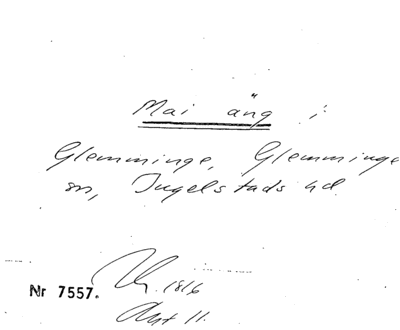 Mai äng i
Glemminge, Glemminge
sn, Ingelstads hd.
Nr 7557. 1816
Akt 11.